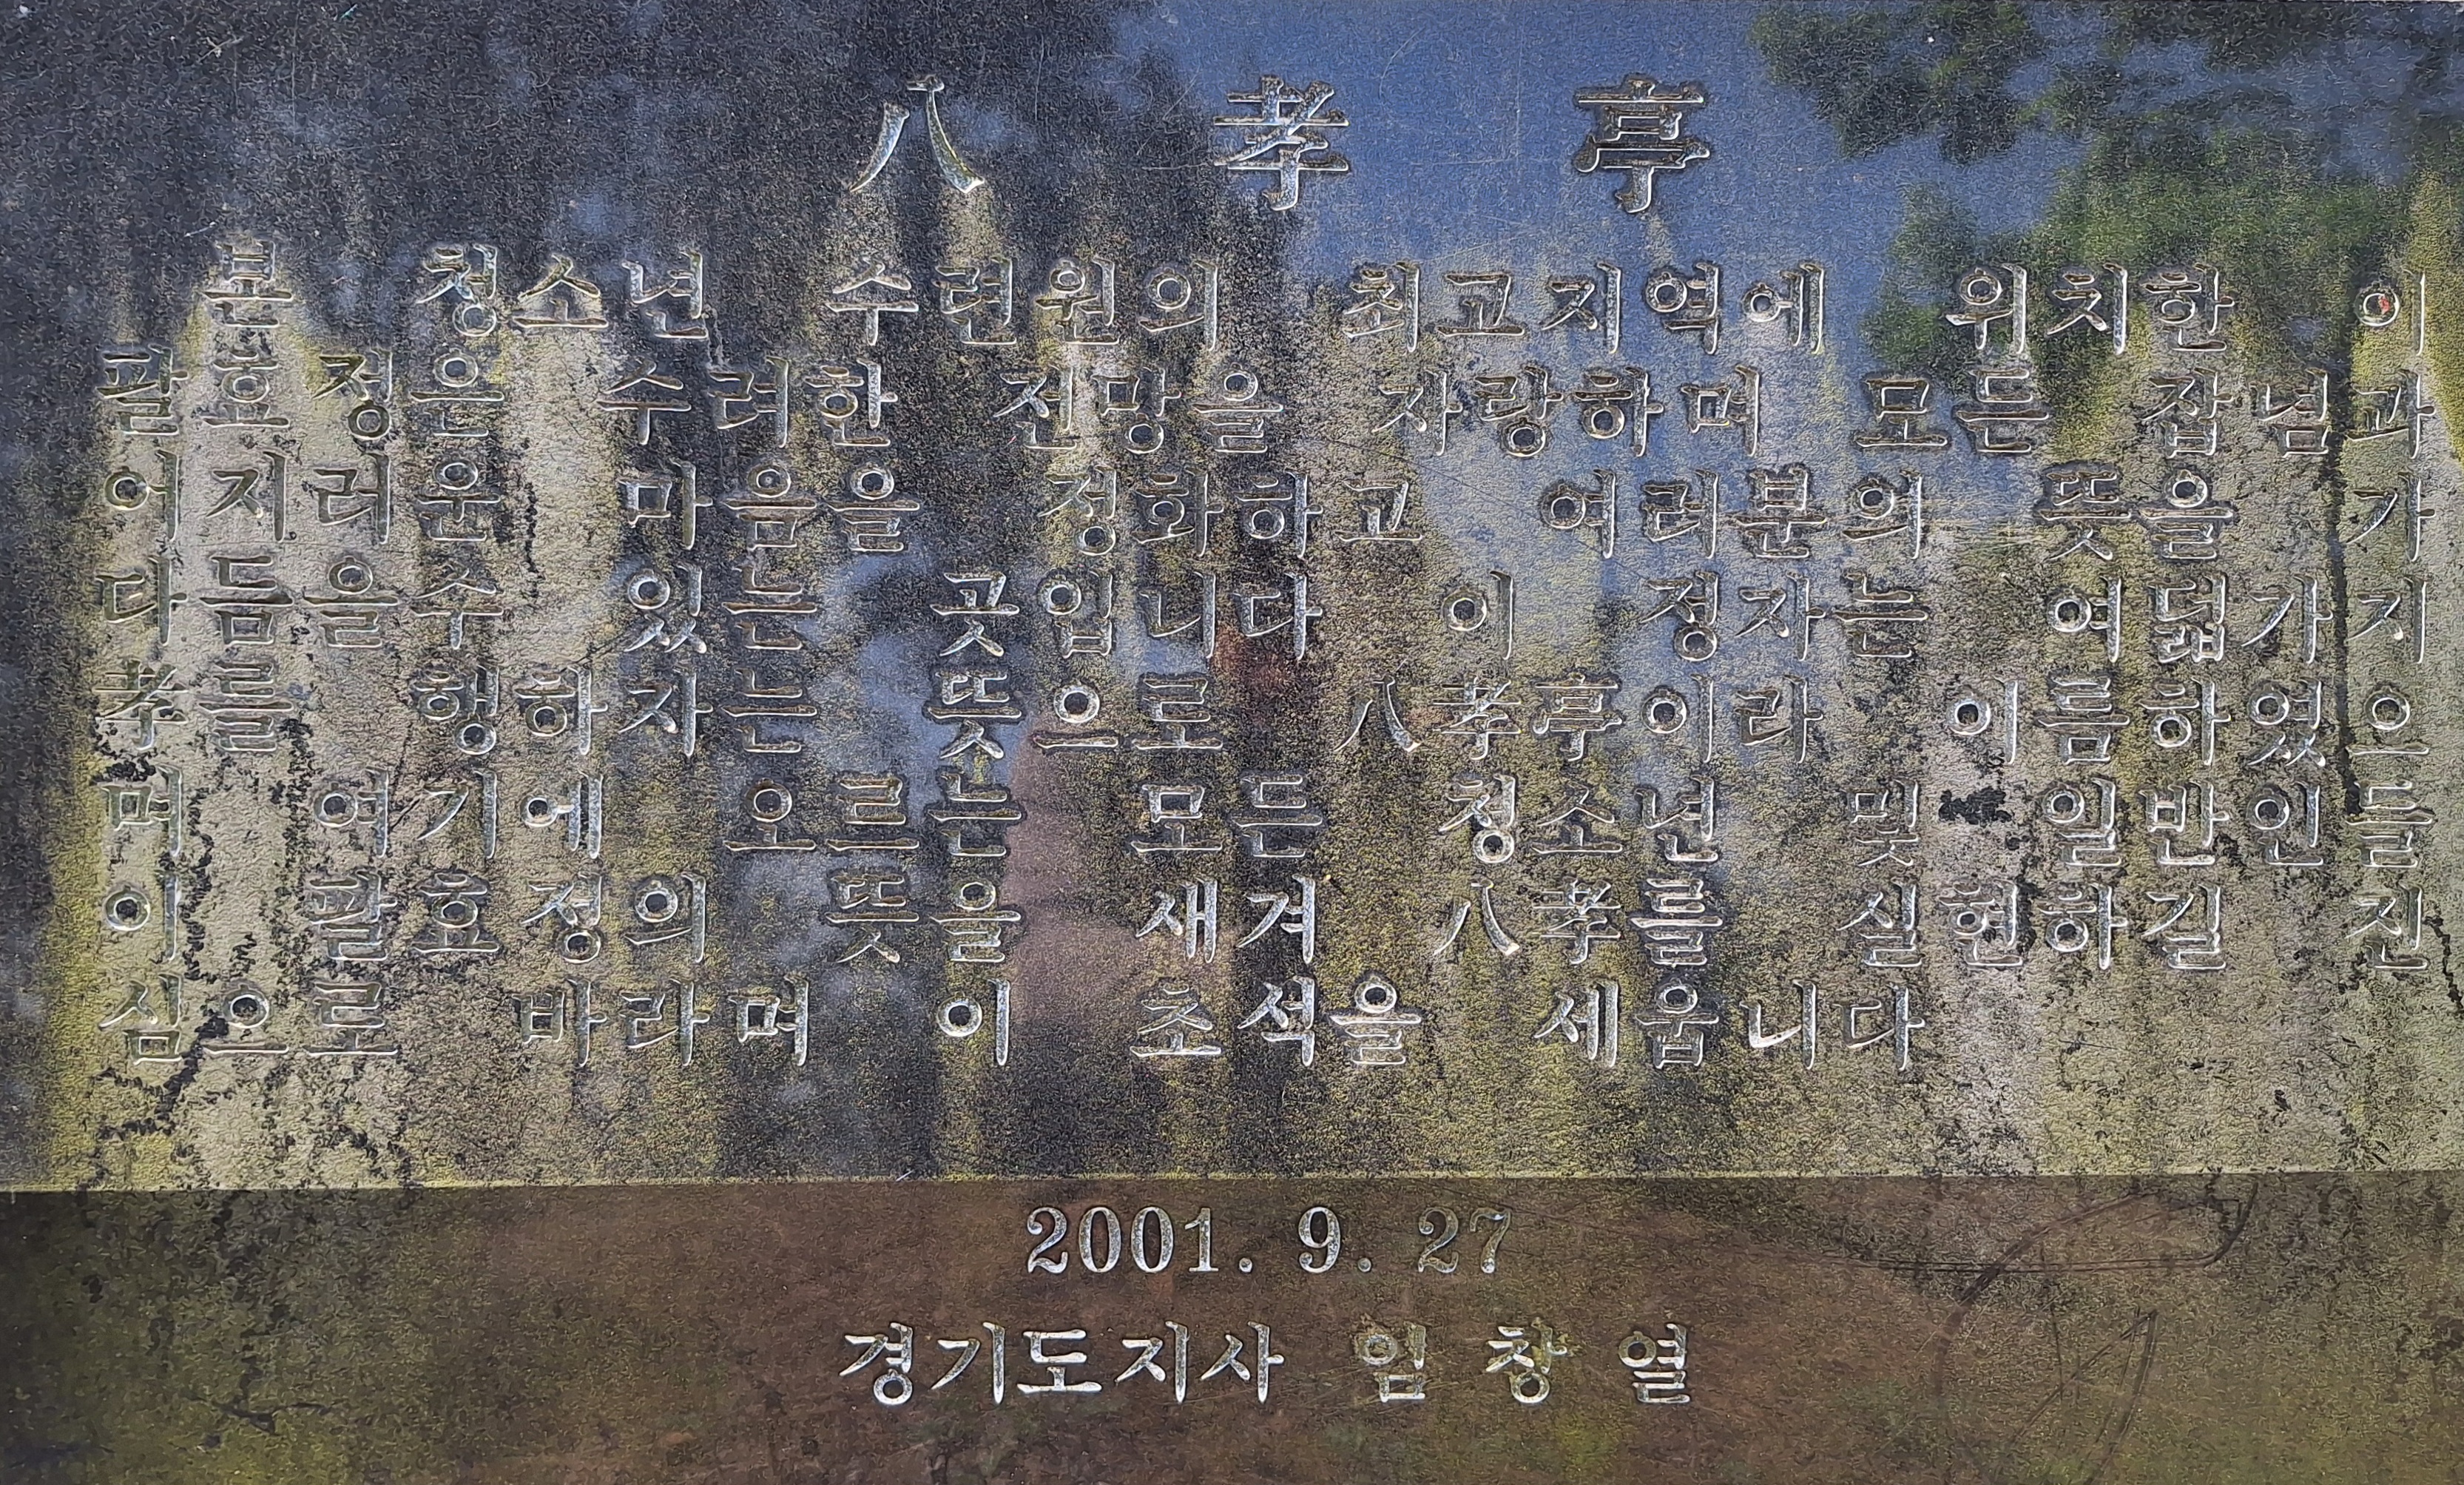 八 孝 亭
본 청소년 수련원의 최고지역에 위치한 이
팔효정은 수려한 전망을 자랑하며 모든 잡념과
어지러운 마음을 정화하고 여러분의 뜻을 가
다듬을수 있는 곳입니다 이 정자는 여덟가지
孝를 행하자는 뜻으로 八孝亭이라 이름하였으
며 여기에 오르는 모든 청소년 및 일반인들
이 팔효정의 뜻을 새겨 八孝를 실현하길 진
심으로 바라며 이 초석을 세웁니다
2001. 9. 27
경기도지사 임 창 열